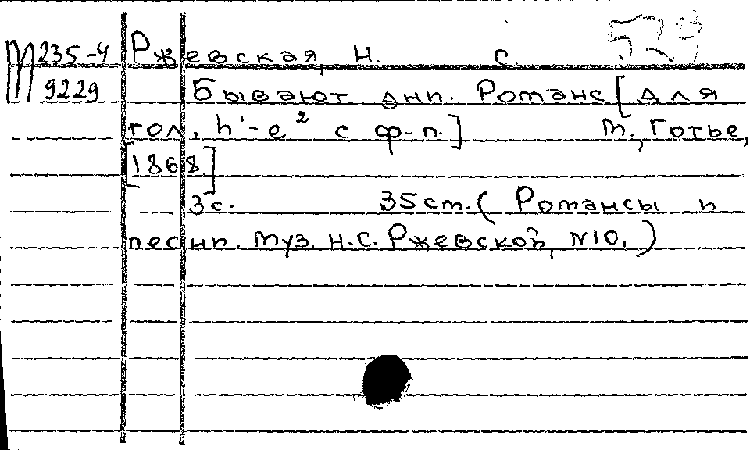 М 235-4 Ржевская, Н. С.
9229 Бывают дни. Романс [для
гол. h¹-e² с ф-п.] М., Готье,
[1868]
3с. 35 ст. (Романсы и
песни. Муз. Н.С. Ржевской, N10.)